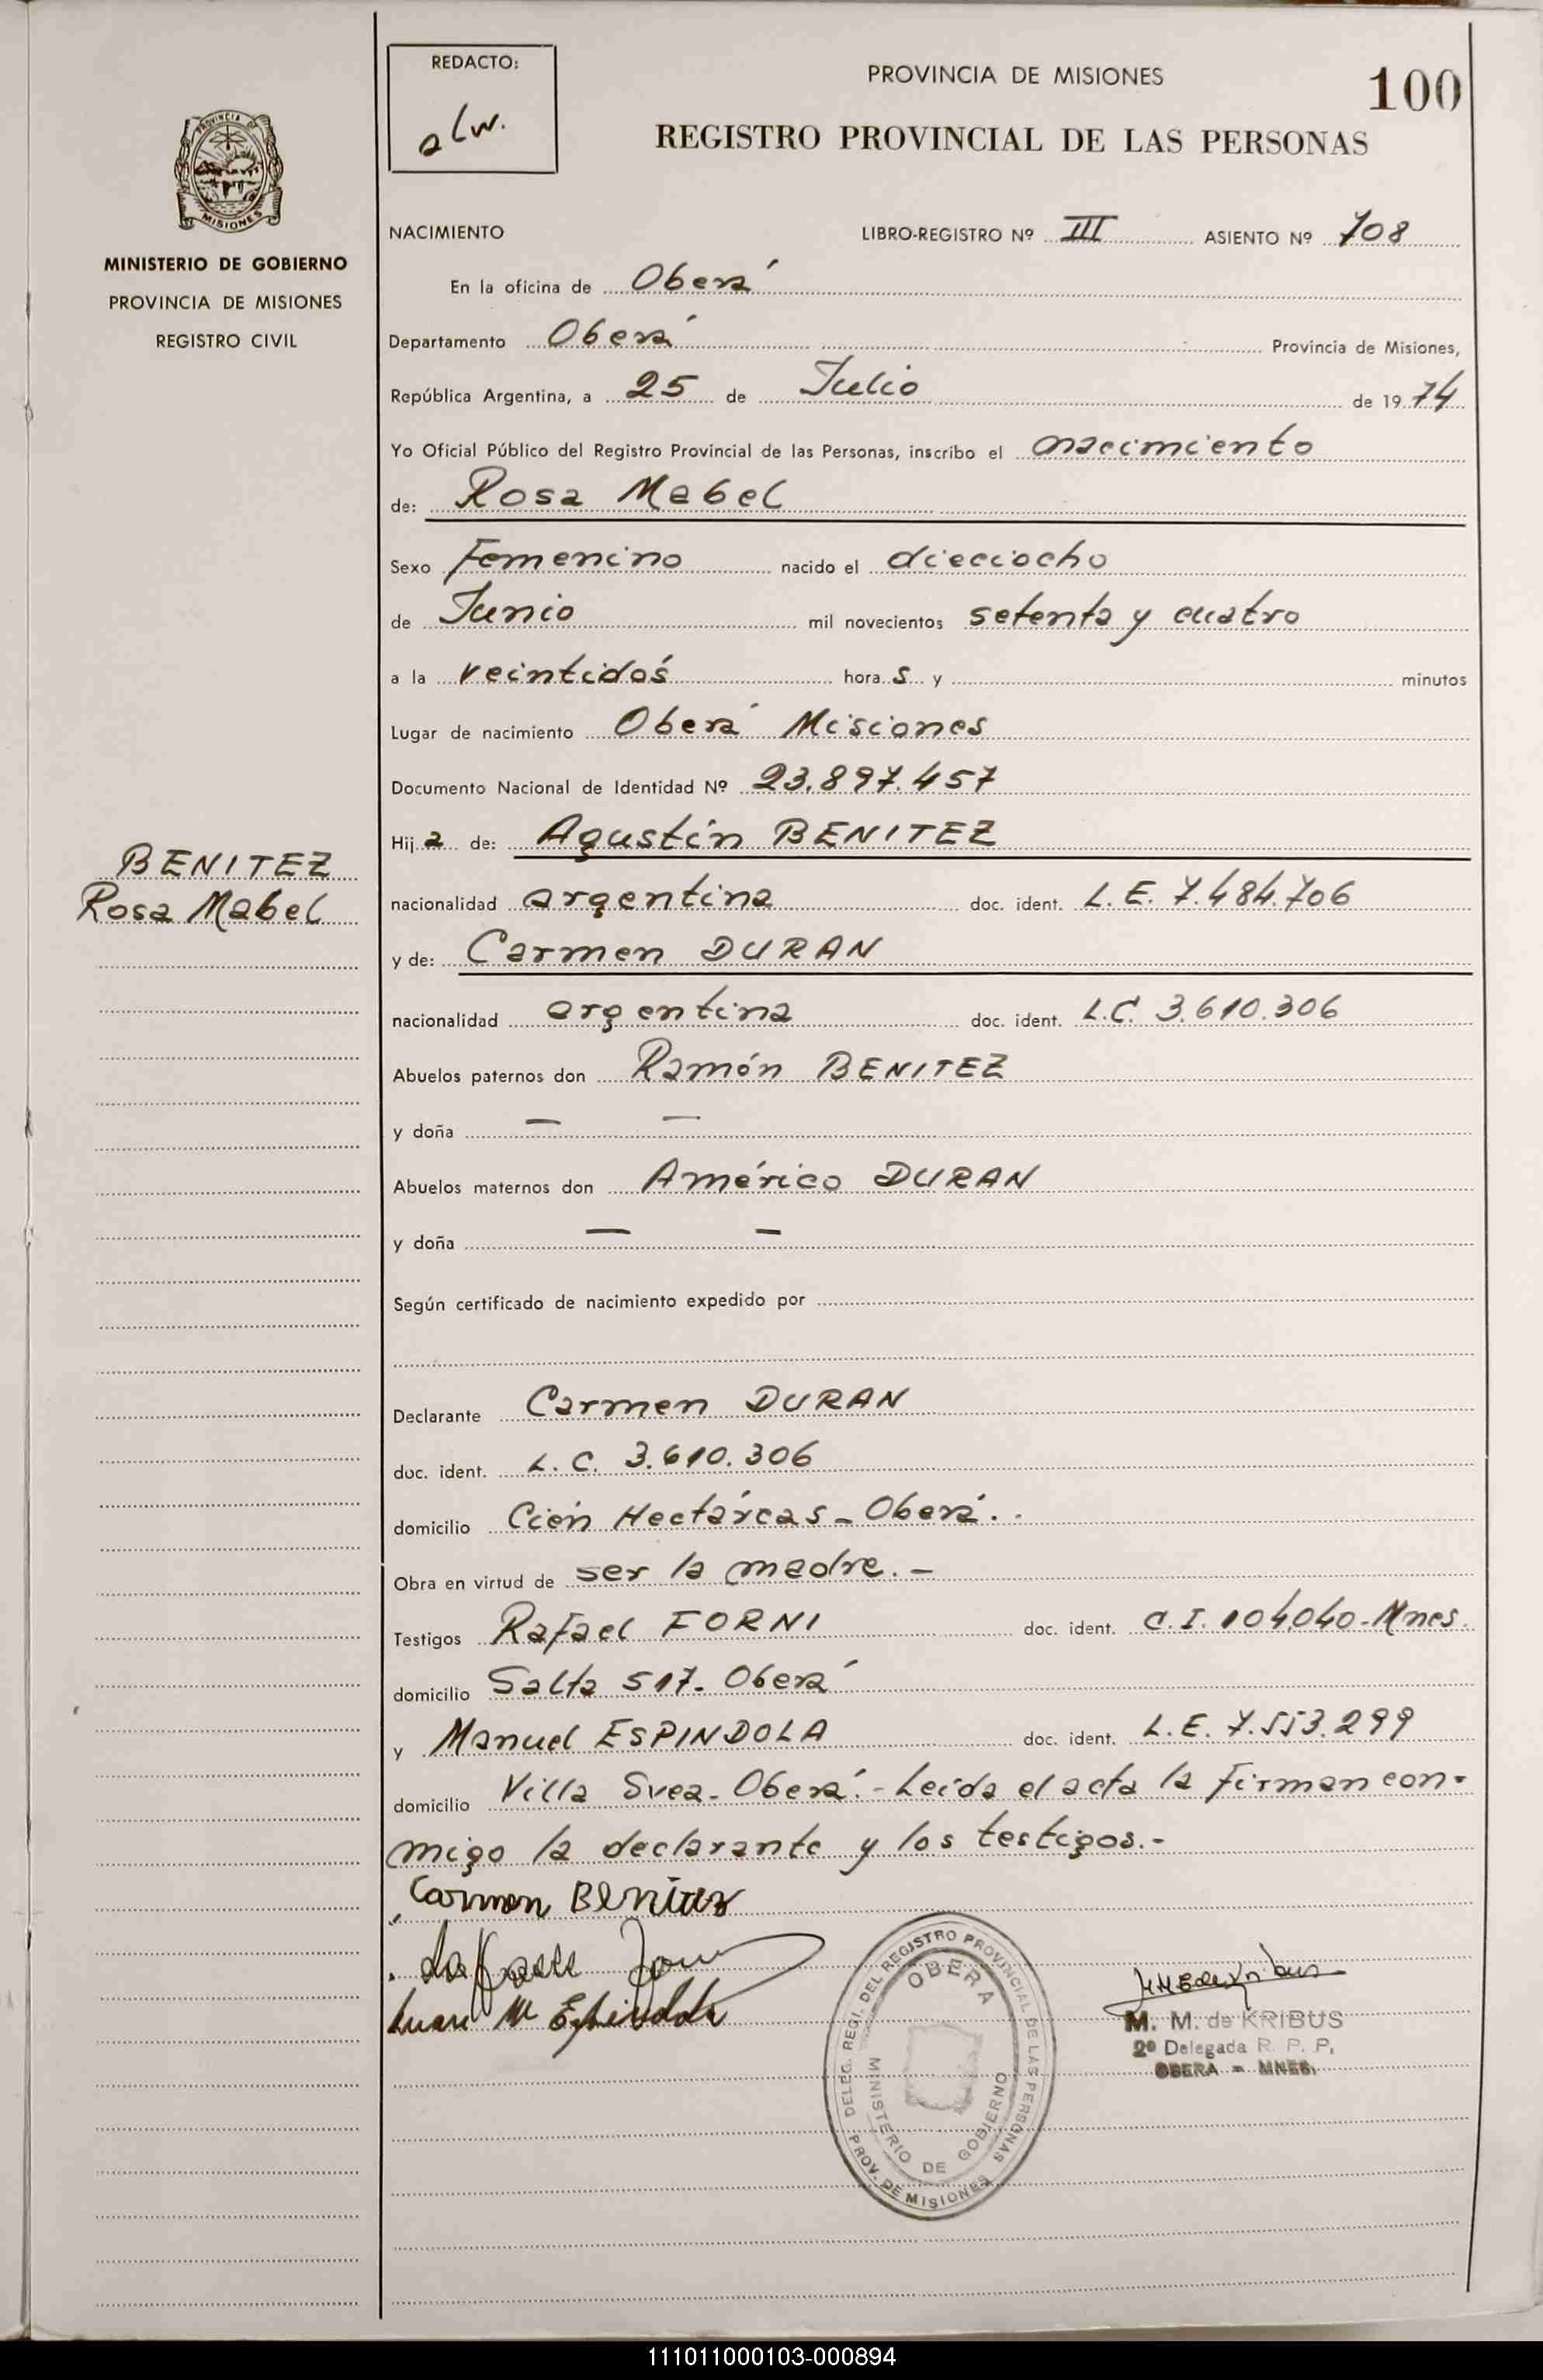 REDACTO:
alw.
PROVINCIA DE MISIONES
100
REGISTRO PROVINCIAL DE LAS PERSONAS
PROVINCIA DE
MISIONES
MINISTERIO DE GOBIERNO
PROVINCIA DE MISIONES
REGISTRO CIVIL
NACIMIENTO LIBRO-REGISTRO Nº III ASIENTO Nº 708
En la oficina de Oberá
Departamento Oberá Provincia de Misiones,
República Argentina, a 25 de Julio de 1974
Yo Oficial Público del Registro Provincial de las Personas, inscribo el nacimiento
de: Rosa Mabel
Sexo Femenino nacido el dieciocho
de Junio mil novecientos setenta y cuatro
a la veintidós hora s y minutos
Lugar de nacimiento Oberá Misiones
Documento Nacional de Identidad Nº 23.897.457
Hij a de: Agustín BENITEZ
BENITEZ
Rosa Mabel
nacionalidad argentina doc. ident. L.E. 7.484.706
y de: Carmen DURAN
nacionalidad argentina doc. ident. L.C. 3.610.306
Abuelos paternos don Ramón BENITEZ
y doña — —
Abuelos maternos don Américo DURAN
y doña — —
Según certificado de nacimiento expedido por
Declarante Carmen DURAN
doc. ident. L.C. 3.610.306
domicilio Cién Hectáreas - Oberá..
Obra en virtud de ser la madre.-
Testigos Rafael FORNI doc. ident. C.I. 104.040-Mnes.
domicilio Salta 517. Oberá
y Manuel ESPINDOLA doc. ident. L.E. 7.553.299
domicilio Villa Svea. Oberá.- Leída el acta la firman con-
migo la declarante y los testigos.-
Carmen Benitez
Juan M Espindola
DELEG. REGI. DEL REGISTRO PROVINCIAL DE LAS PERSONAS
OBERA
MINISTERIO DE GOBIERNO
PROV. DE MISIONES
M. M. de KRIBUS
2º Delegada R. P. P.
OBERA - MNES.
111011000103-000894